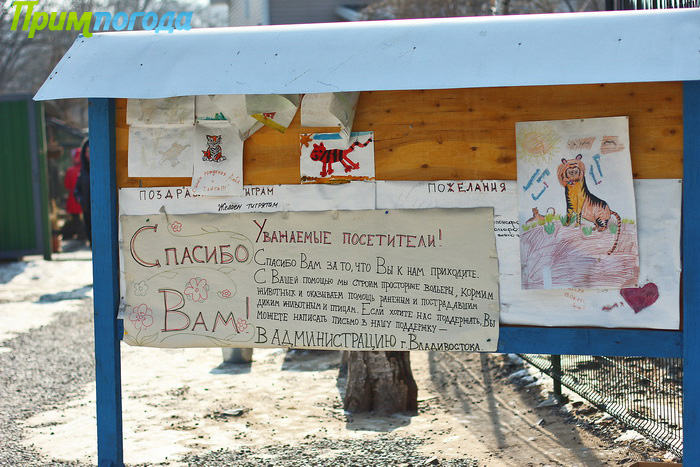 Примпогода
ПОЗДРА
ГРАМ
Желаем тигрятам
ПОЖЕЛАНИЯ
Спасибо
Вам!
Уважаемые посетители!
Спасибо Вам за то, что Вы к нам приходите.
С Вашей помощью мы строим просторные вольеры, кормим
животных и оказываем помощь раненым и пострадавшим
диким животным и птицам. Если хотите нас поддержать, Вы
можете написать письмо в нашу поддержку —
в администрацию г. Владивостока.